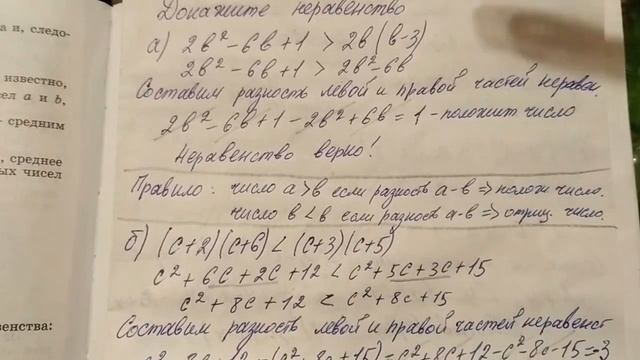 а и, следо-
известно,
сел a и b,
средним
, среднее
ых чисел
венства:
Докажите неравенство
а) 2в²-6в+1 > 2в(в-3)
2в²-6в+1 > 2в²-6в
Составим разность левой и правой частей нерав.
2в²-6в+1-2в²+6в = 1 - положит число
Неравенство верно!
Правило: число а>в если разность а-в => полож число.
число в < в если разность а-в => отриц. число.
б) (c+2)(c+6) < (c+3)(c+5)
c²+6c+2c+12 < c²+5c+3c+15
c²+8c+12 < c²+8c+15
Составим разность левой и правой частей неравенст
c²+8c+12-(c²+8c+15)=c²+8c+12-c²-8c-15=-3